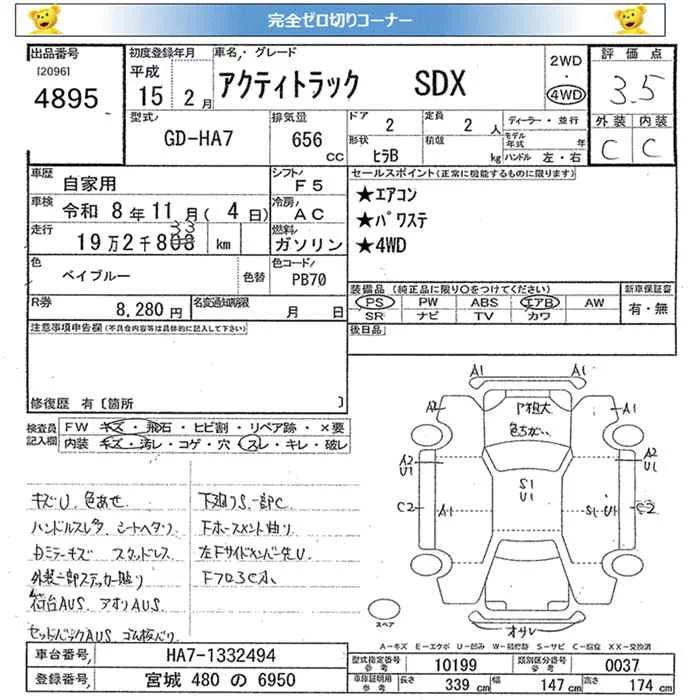 完全ゼロ切りコーナー
出品番号 初度登録年月 車名・グレード 2WD・4WD 評価点
[2096] 平成 アクティトラック SDX 3.5
4895 15年2月 外装 内装
型式 GD-HA7 排気量 656 CC ドア 2 定員 2人 ディーラー・並行 C C
形状 ヒラB 積載 kg モデル年式 年 ハンドル 左・右
車歴 自家用 シフト F5 セールスポイント(正常に機能するものに限ります)
車検 令和 8年11月(4日) 冷房 AC ★エアコン
走行 19万2千808 33 km 燃料 ガソリン ★パワステ
★4WD
色 ベイブルー 色替 色コード PB70
装備品(純正品に限り○をつけてください) 新車保証書
R券 8,280円 名変通知期限 月 日 PS PW ABS エアB AW 有・無
SR ナビ TV カワ
注意事項申告欄(不具合内容等は具体的に記入して下さい) 後日品
修復歴 有〔箇所 〕
検査員記入欄 FW キズ・飛石・ヒビ割・リペア跡・×要
内装 キズ・汚レ・コゲ・穴・スレ・キレ・破レ
A1 A1
A2 P粗大 A1
色ちがい
A2 U1 A2 U1
S1 U1
C2 A1 S1U1 C2
キズU 色あせ 下廻りS一部C
ハンドルスレ シートヘタリ Fホースメント曲り
ミラーキズ スタッドレス 左Fサイドメンバー先U
外装一部ステッカー貼り Fフロア
荷台AUS アオリAUS
セットバックAUS ゴム板バリ
スペア オサレ
A-キズ E-エクボ U-凹み W-補修跡 S-サビ C-腐食 XX-交換済
車台番号 HA7-1332494 型式指定番号の参考 10199 類別区分番号の参考 0037
登録番号 宮城 480 の 6950 車庫証明用の参考 長さ 339 cm 幅 147 cm 高さ 174 cm